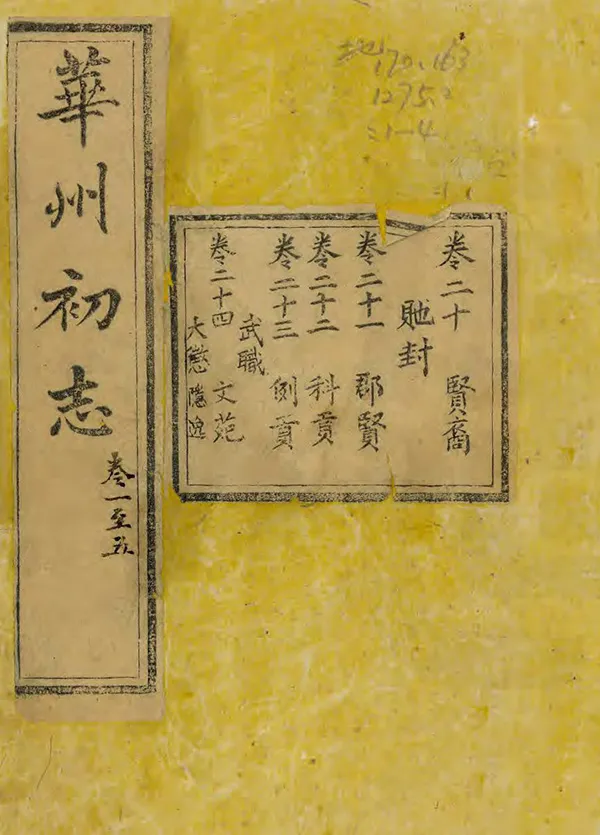 華州初志
卷一至五
卷二十 賢裔
貤封
卷二十一 郡賢
卷二十二 科貢
卷二十三 例貢
武職
卷二十四 文苑
大 隱逸
地
170.163
1275.2
:1-4